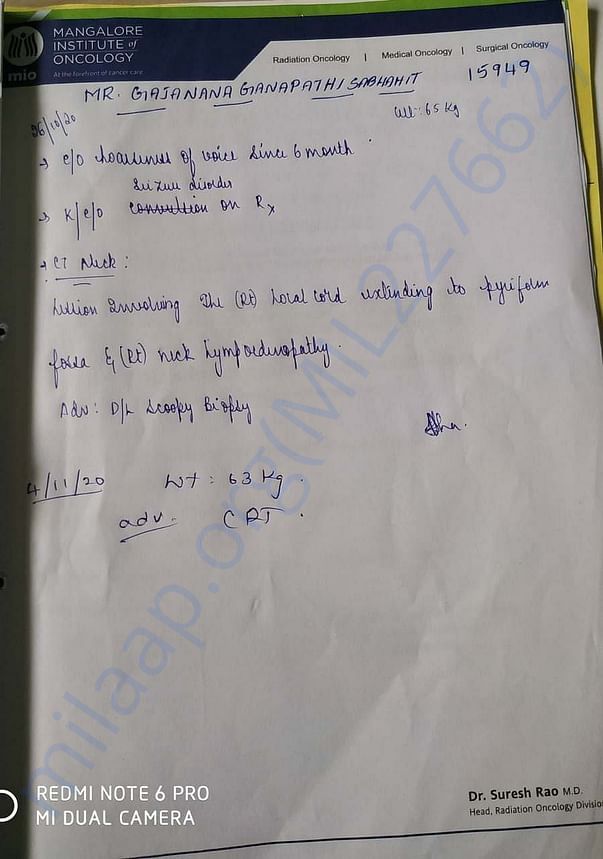 MANGALORE
INSTITUTE of
ONCOLOGY
mio
At the forefront of cancer care
Radiation Oncology | Medical Oncology | Surgical Oncology
MR. GAJANANA GANAPATHI SABHAHIT
15949
26/10/20
Wt: 65 Kg
→ c/o hoarsenes of voice since 6 month
Seizure disorder
→ K/c/o convultion on Rx
→ CT Neck:
Lession Involving The (Rt) Vocal cord extending to pyriform
fossa & (Rt) neck Lympadenopathy.
Adv: D/L Scoopy Biopsy
4/11/20 Wt: 63 Kg.
adv. CRT.
milaap.org(MIL2276662)
REDMI NOTE 6 PRO
MI DUAL CAMERA
Dr. Suresh Rao M.D.
Head, Radiation Oncology Division